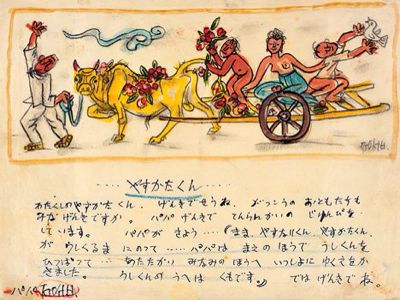 ....やすかたくん....
わたくしのやすかたくん げんきでせうね。 がっこうの おともだちも
みな げんきですか。 パパ げんきで てんらんかいの じゅんびを
しています。 パパが きょう……「まま やすなりくん やすかたくん
が うしくるま にのって ……パパは まえのほうで うしくんを
ひっぱって …… あたたかい みなみのほうへ いっしょに ゆくえをか
きました。 うしくんの うへは くもです」 では げんきで ね。
パパ